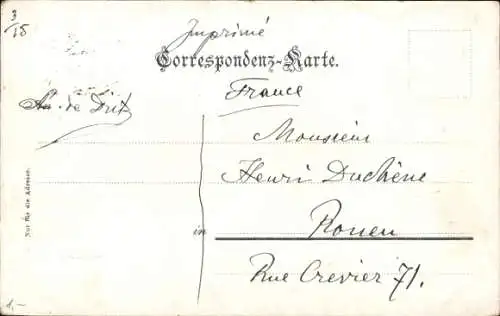 3/15
Imprimé
Correspondenz-Karte.
France
de
Monsieur
Henri Duchêne
in Rouen
Rue Crevier 71.
Nur für die Adresse.
1.-